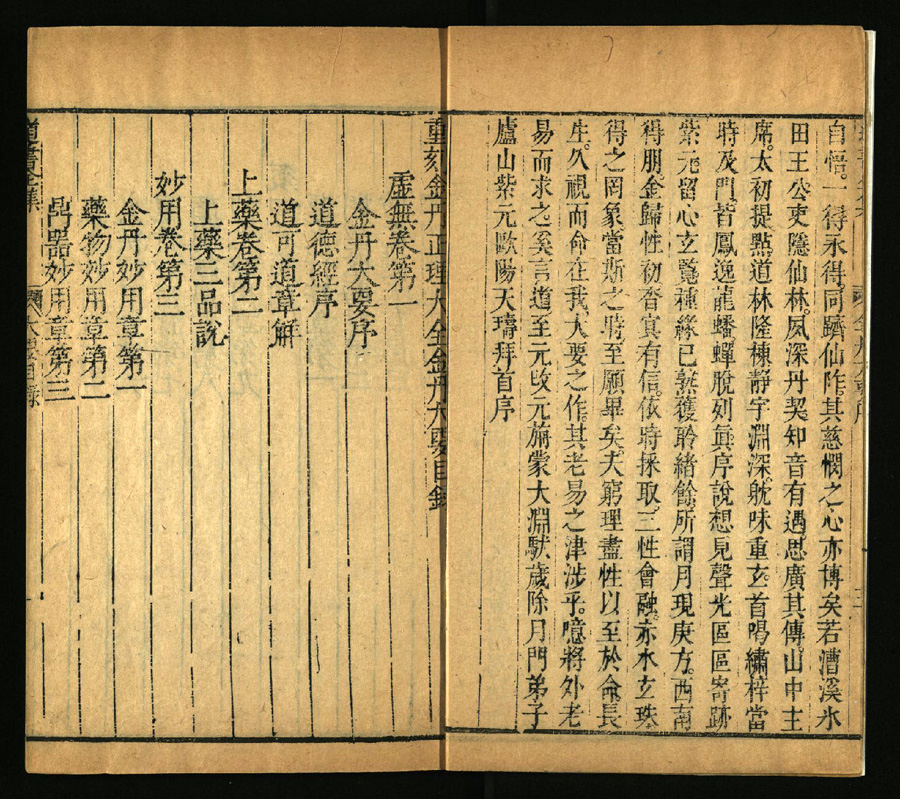 自悟一得永得同躋仙阼其慈憫之心亦博矣若漕溪氷
田王公吏隱仙林夙深丹契知音有遇思廣其傳山中主
席太初提點道林隆棟靜宇淵深躭味重玄首喝繡梓當
時及門皆鳳逸龍蟠蟬脫列眞序說想見聲光區區寄跡
紫元留心玄覽種緣已熟獲聆緒餘所謂月現庚方西南
得朋金歸性初杳㝠有信依時採取三性會融亦水玄珠
得之罔象當斯之時至願畢矣夫窮理盡性以至於命長
生久視而命在我大要之作其老易之津涉乎噫將外老
易而求之奚言道至元攺元旃蒙大淵獻歲除月門弟子
廬山紫元歐陽天璹拜首序
重刻金丹正理大全金丹大要目錄
虛無卷第一
金丹大要序
道德經序
道可道章解
上藥卷第二
上藥三品說
妙用卷第三
金丹妙用章第一
藥物妙用章第二
鼎器妙用章第三
道書全集
大要目錄